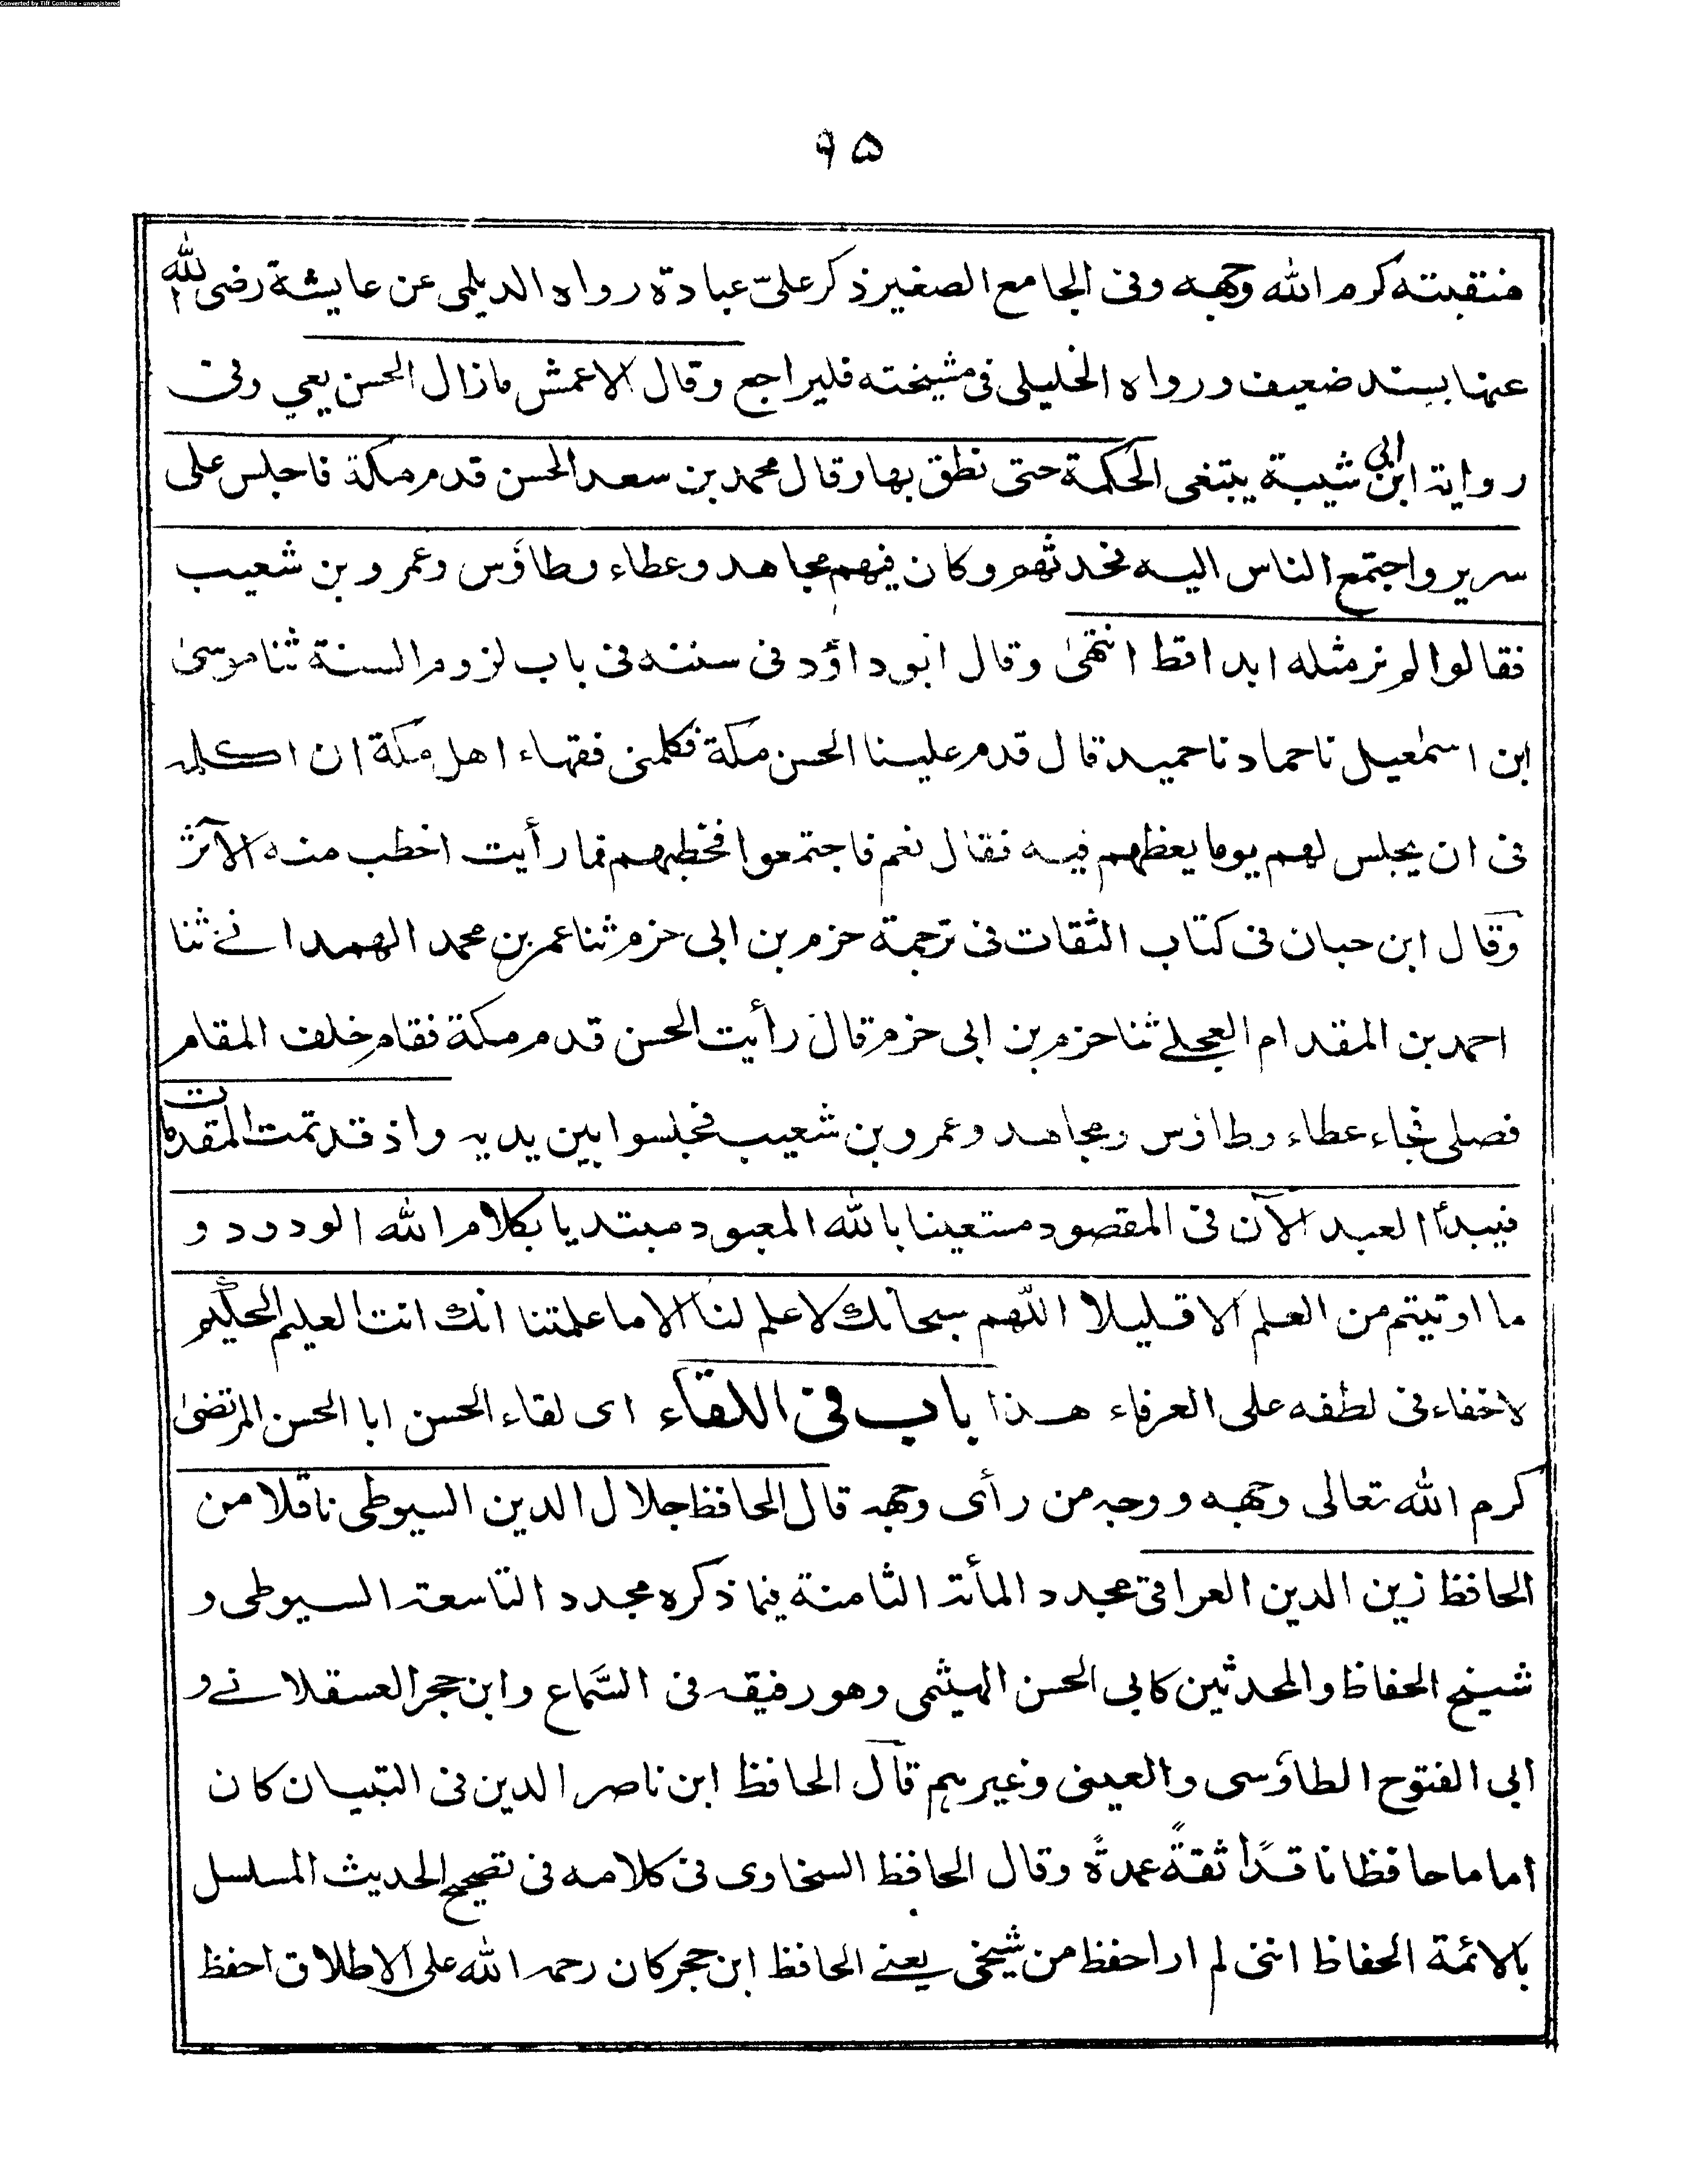 Converted by Tiff Combine - unregistered
٩٥
منقبته كرم الله وجهه وفى الجامع الصغير ذكر علىّ عبادة رواه الديلمى عن عايشة رضى الله
عنها بسند ضعيف ورواه الخليلى فى مشيخته فليراجع وقال الاعمش ما زال الحسن يعي وفى
رواية ابن ابى شيبة يبتغى الحكمة حتى نطق بها وقال محمد بن سعد الحسن قدم مكة فاجلس على
سرير واجتمع الناس اليه فحدثهم وكان فيهم مجاهد وعطاء وطاؤس وعمرو بن شعيب
فقالوا لم نر مثله ابدا قط انتهىٰ وقال ابو داؤد فى سننه فى باب لزوم السنة ثنا موسىٰ
ابن اسمٰعيل نا حماد نا حميد قال قدم علينا الحسن مكة فكلمنى فقهاء اهل مكة ان اكلمه
فى ان يجلس لهم يوما يعظهم فيه فقال نعم فاجتمعوا فخطبهم فما رأيت اخطب منه الآثر
وقال ابن حبان فى كتاب الثقات فى ترجمة حزم بن ابى حزم ثنا عمر بن محمد الهمدانے ثنا
احمد بن المقدام العجلے ثنا حزم بن ابى حزم قال رأيت الحسن قدم مكة فقام خلف المقام
فصلى فجاء عطاء وطاؤس ومجاهد وعمرو بن شعيب فجلسوا بين يديه واذ قد تمت المقدمات
فيبدأ العبد الآن فى المقصود مستعينا بالله المعبود مبتديا بكلام الله الودود و
ما اوتيتم من العلم الا قليلا اللّٰهم سبحانك لا علم لنا الا ما علمتنا انك انت العليم الحكيم
لا خفاء فى لطفه على العرفاء هذا باب فى اللقاء اى لقاء الحسن ابا الحسن المرتضىٰ
كرم الله تعالى وجهه ووجه من رأى وجهه قال الحافظ جلال الدين السيوطى ناقلا من
الحافظ زين الدين العراقى مجدد المأته الثامنة فيما ذكره مجدد التاسعة السيوطى و
شيخ الحفاظ والمحدثين كابى الحسن الهيثمى وهو رفيقه فى السَّماع وابن حجر العسقلانے و
ابى الفتوح الطاؤسى والعينى وغيرہم قال الحافظ ابن ناصر الدين فى التبيان كان
اماما حافظا ناقدًا ثقةً عمدةً وقال الحافظ السخاوى فى كلامه فى تصحيح الحديث المسلسل
بالائمة الحفاظ اننى لم ار احفظ من شيخى يعنے الحافظ ابن حجر كان رحمه الله على الاطلاق احفظ